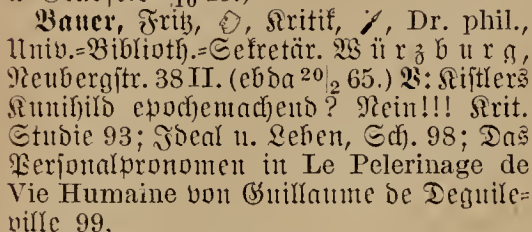 Bauer, Fritz, Kritik, Dr. phil.,
Univ.=Biblioth.=Sekretär. Würzburg,
Neubergstr. 38 II. (ebda 20|2 65.) V: Kistlers
Kunihild epochemachend? Nein!!! Krit.
Studie 93; Ideal u. Leben, Sch. 98; Das
Personalpronomen in Le Pelerinage de
Vie Humaine von Guillaume de Deguile=
ville 99.